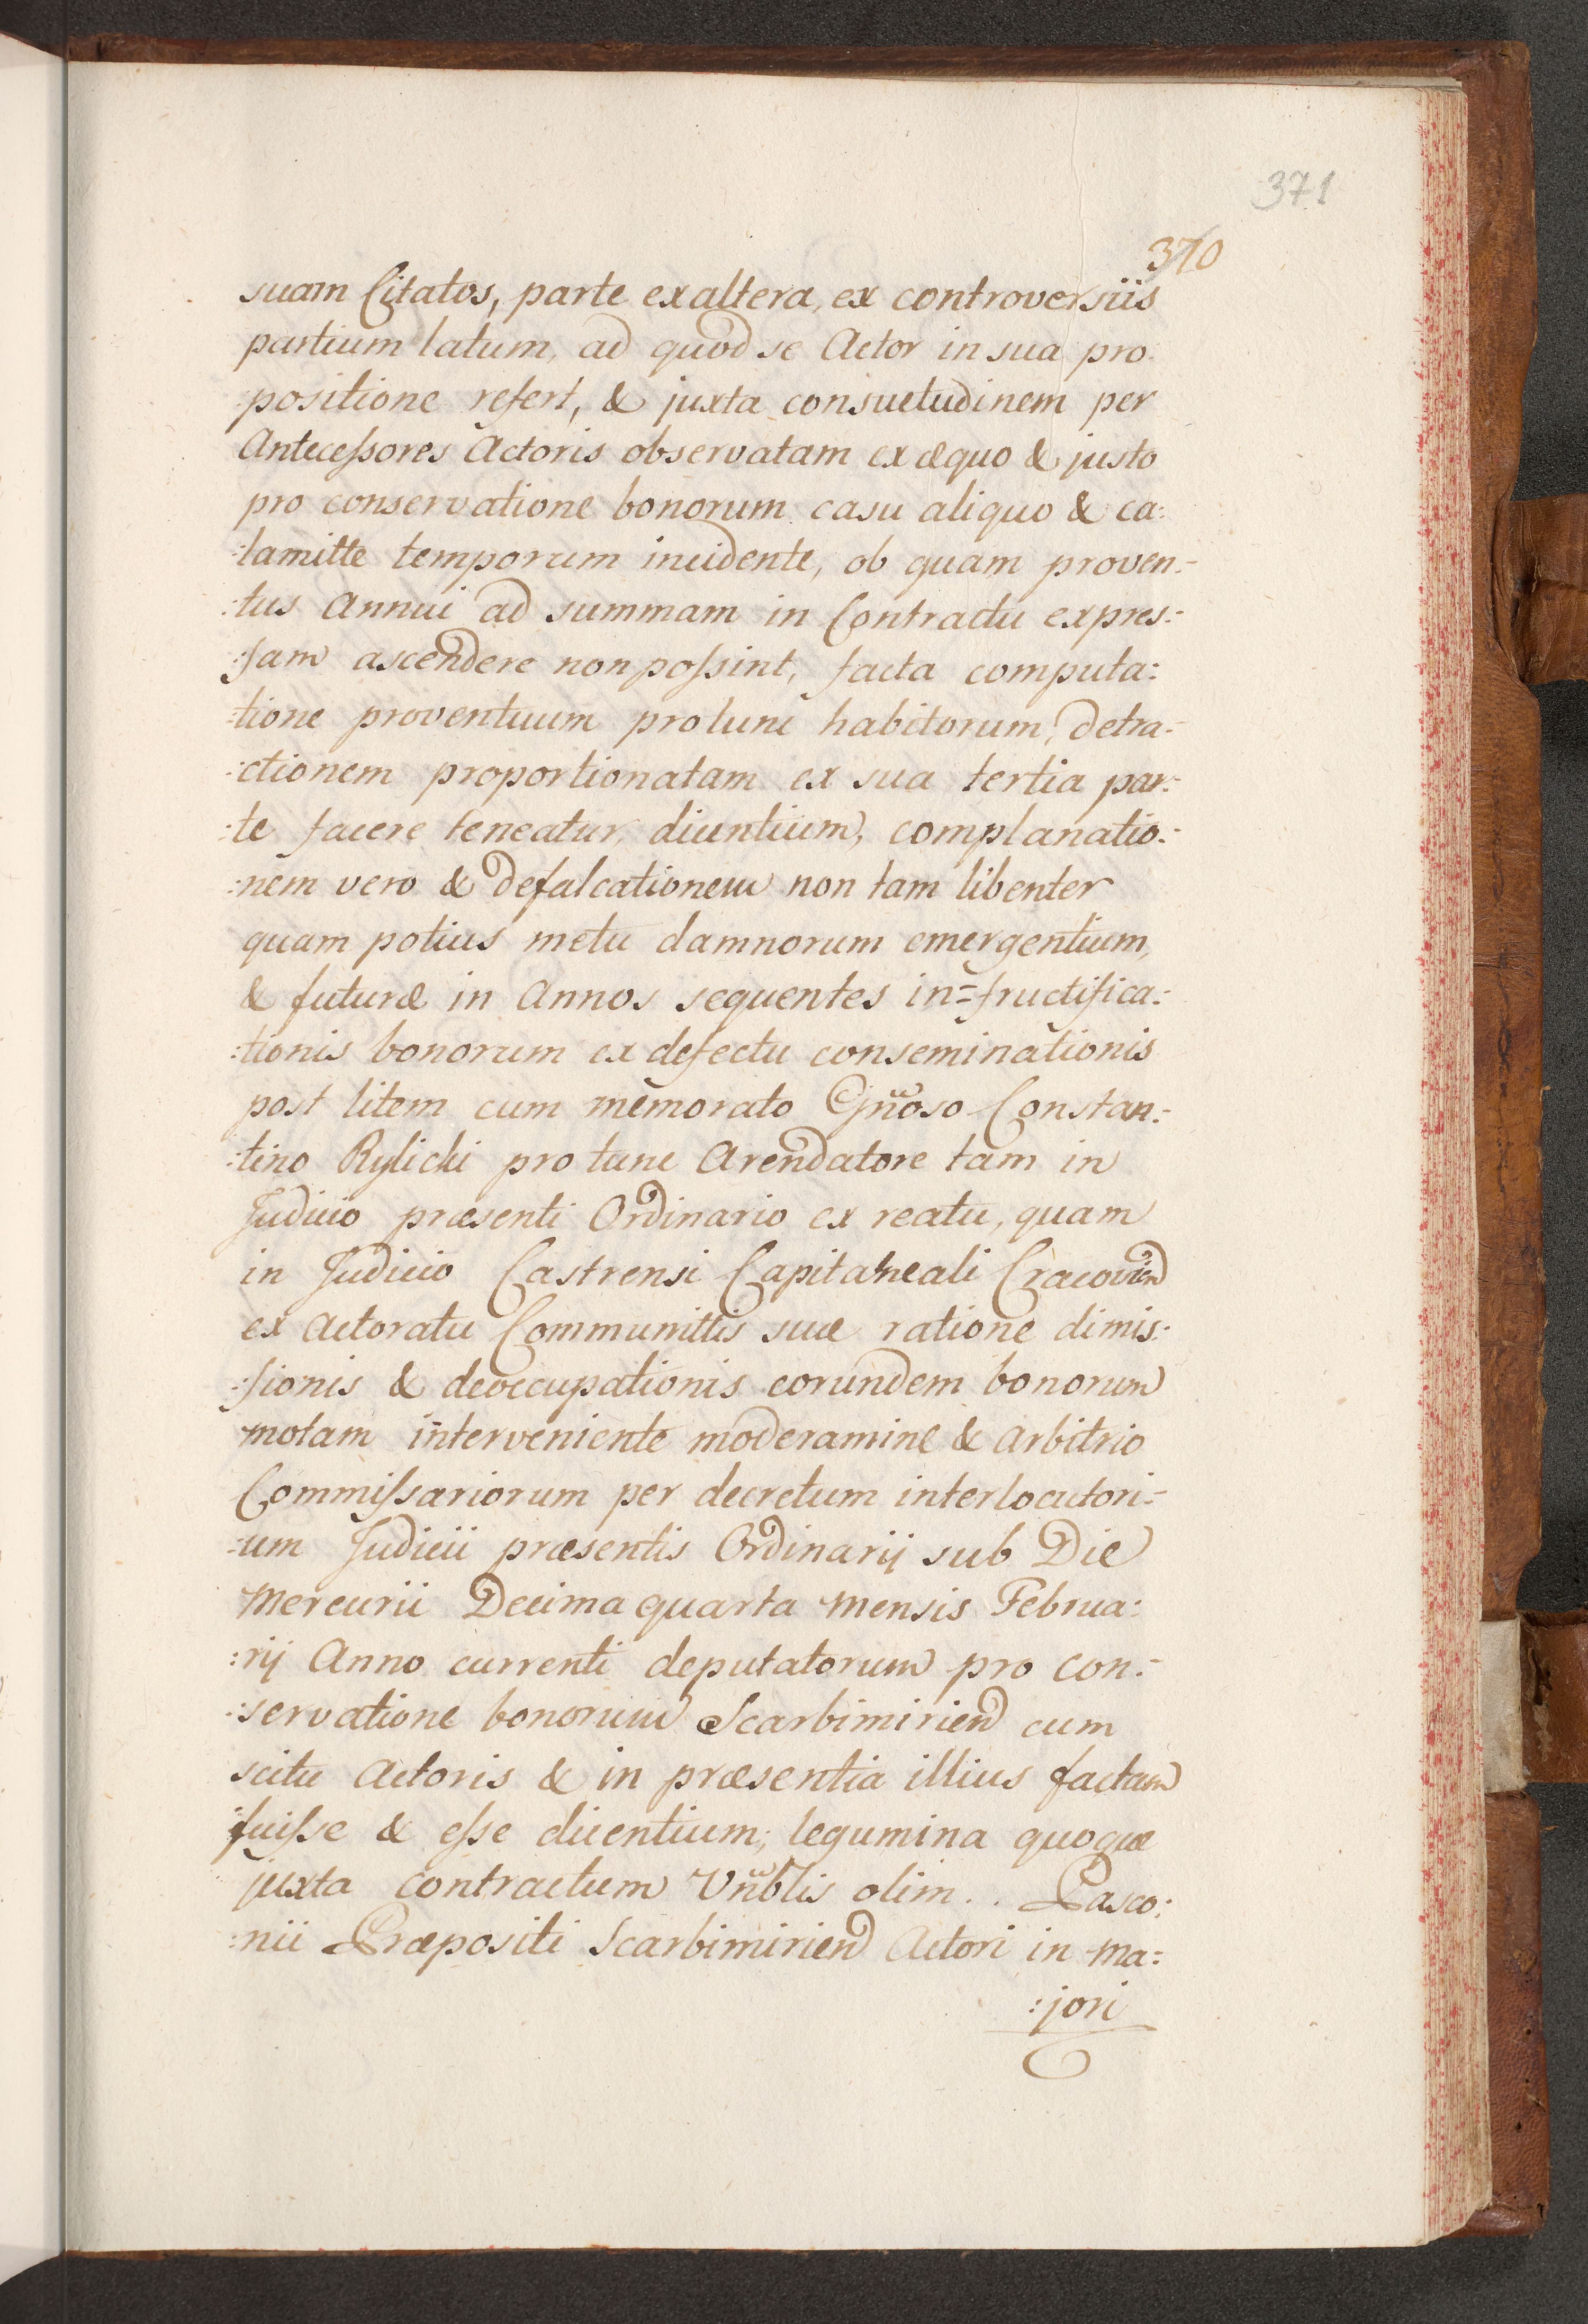 371
370
suam Citatos, parte ex altera, ex controversiis
partium latum, ad quod se Actor in sua pro
:positione refert, & juxta consuetudinem per
Antecessores Actoris observatam ex æquo & justo
pro conservatione bonorum casu aliquo & ca:
:lamitte temporum incidente, ob quam proven:
:tus Annui ad summam in Contractu expres:
:sam ascendere non possint, facta computa:
:tione proventuum protunc habitorum, detra:
:ctionem proportionatam ex sua tertia par:
:te facere teneatur, dicentium, complanatio:
:nem vero & defalcationem non tam libenter
quam potius metu damnorum emergentium,
& futuræ in Annos sequentes in=fructifica:
:tionis bonorum ex defectu conseminationis
post litem cum memorato Gnoso Constan:
:tino Rylicki pro tunc Arendatore tam in
Judicio præsenti Ordinario ex reatu, quam
in Judicio Castrensi Capitaneali Cracovien
ex Actoratu Communittis suæ ratione dimis:
:sionis & deoccupationis eorundem bonorum
motam interveniente moderamine & arbitrio
Commissariorum per decretum interlocutori:
:um Judicii præsentis Ordinarij sub Die
Mercurii Decima quarta Mensis Februa:
:rij Anno currenti deputatorum pro con:
:servatione bonorum Scarbimirien cum
scitu Actoris & in præsentia illius factam
fuisse & esse dicentium; legumina quoque
juxta contractum Vnblis olim . . Pasco:
:nii Præpositi Scarbimirien Actori in ma:
:jori